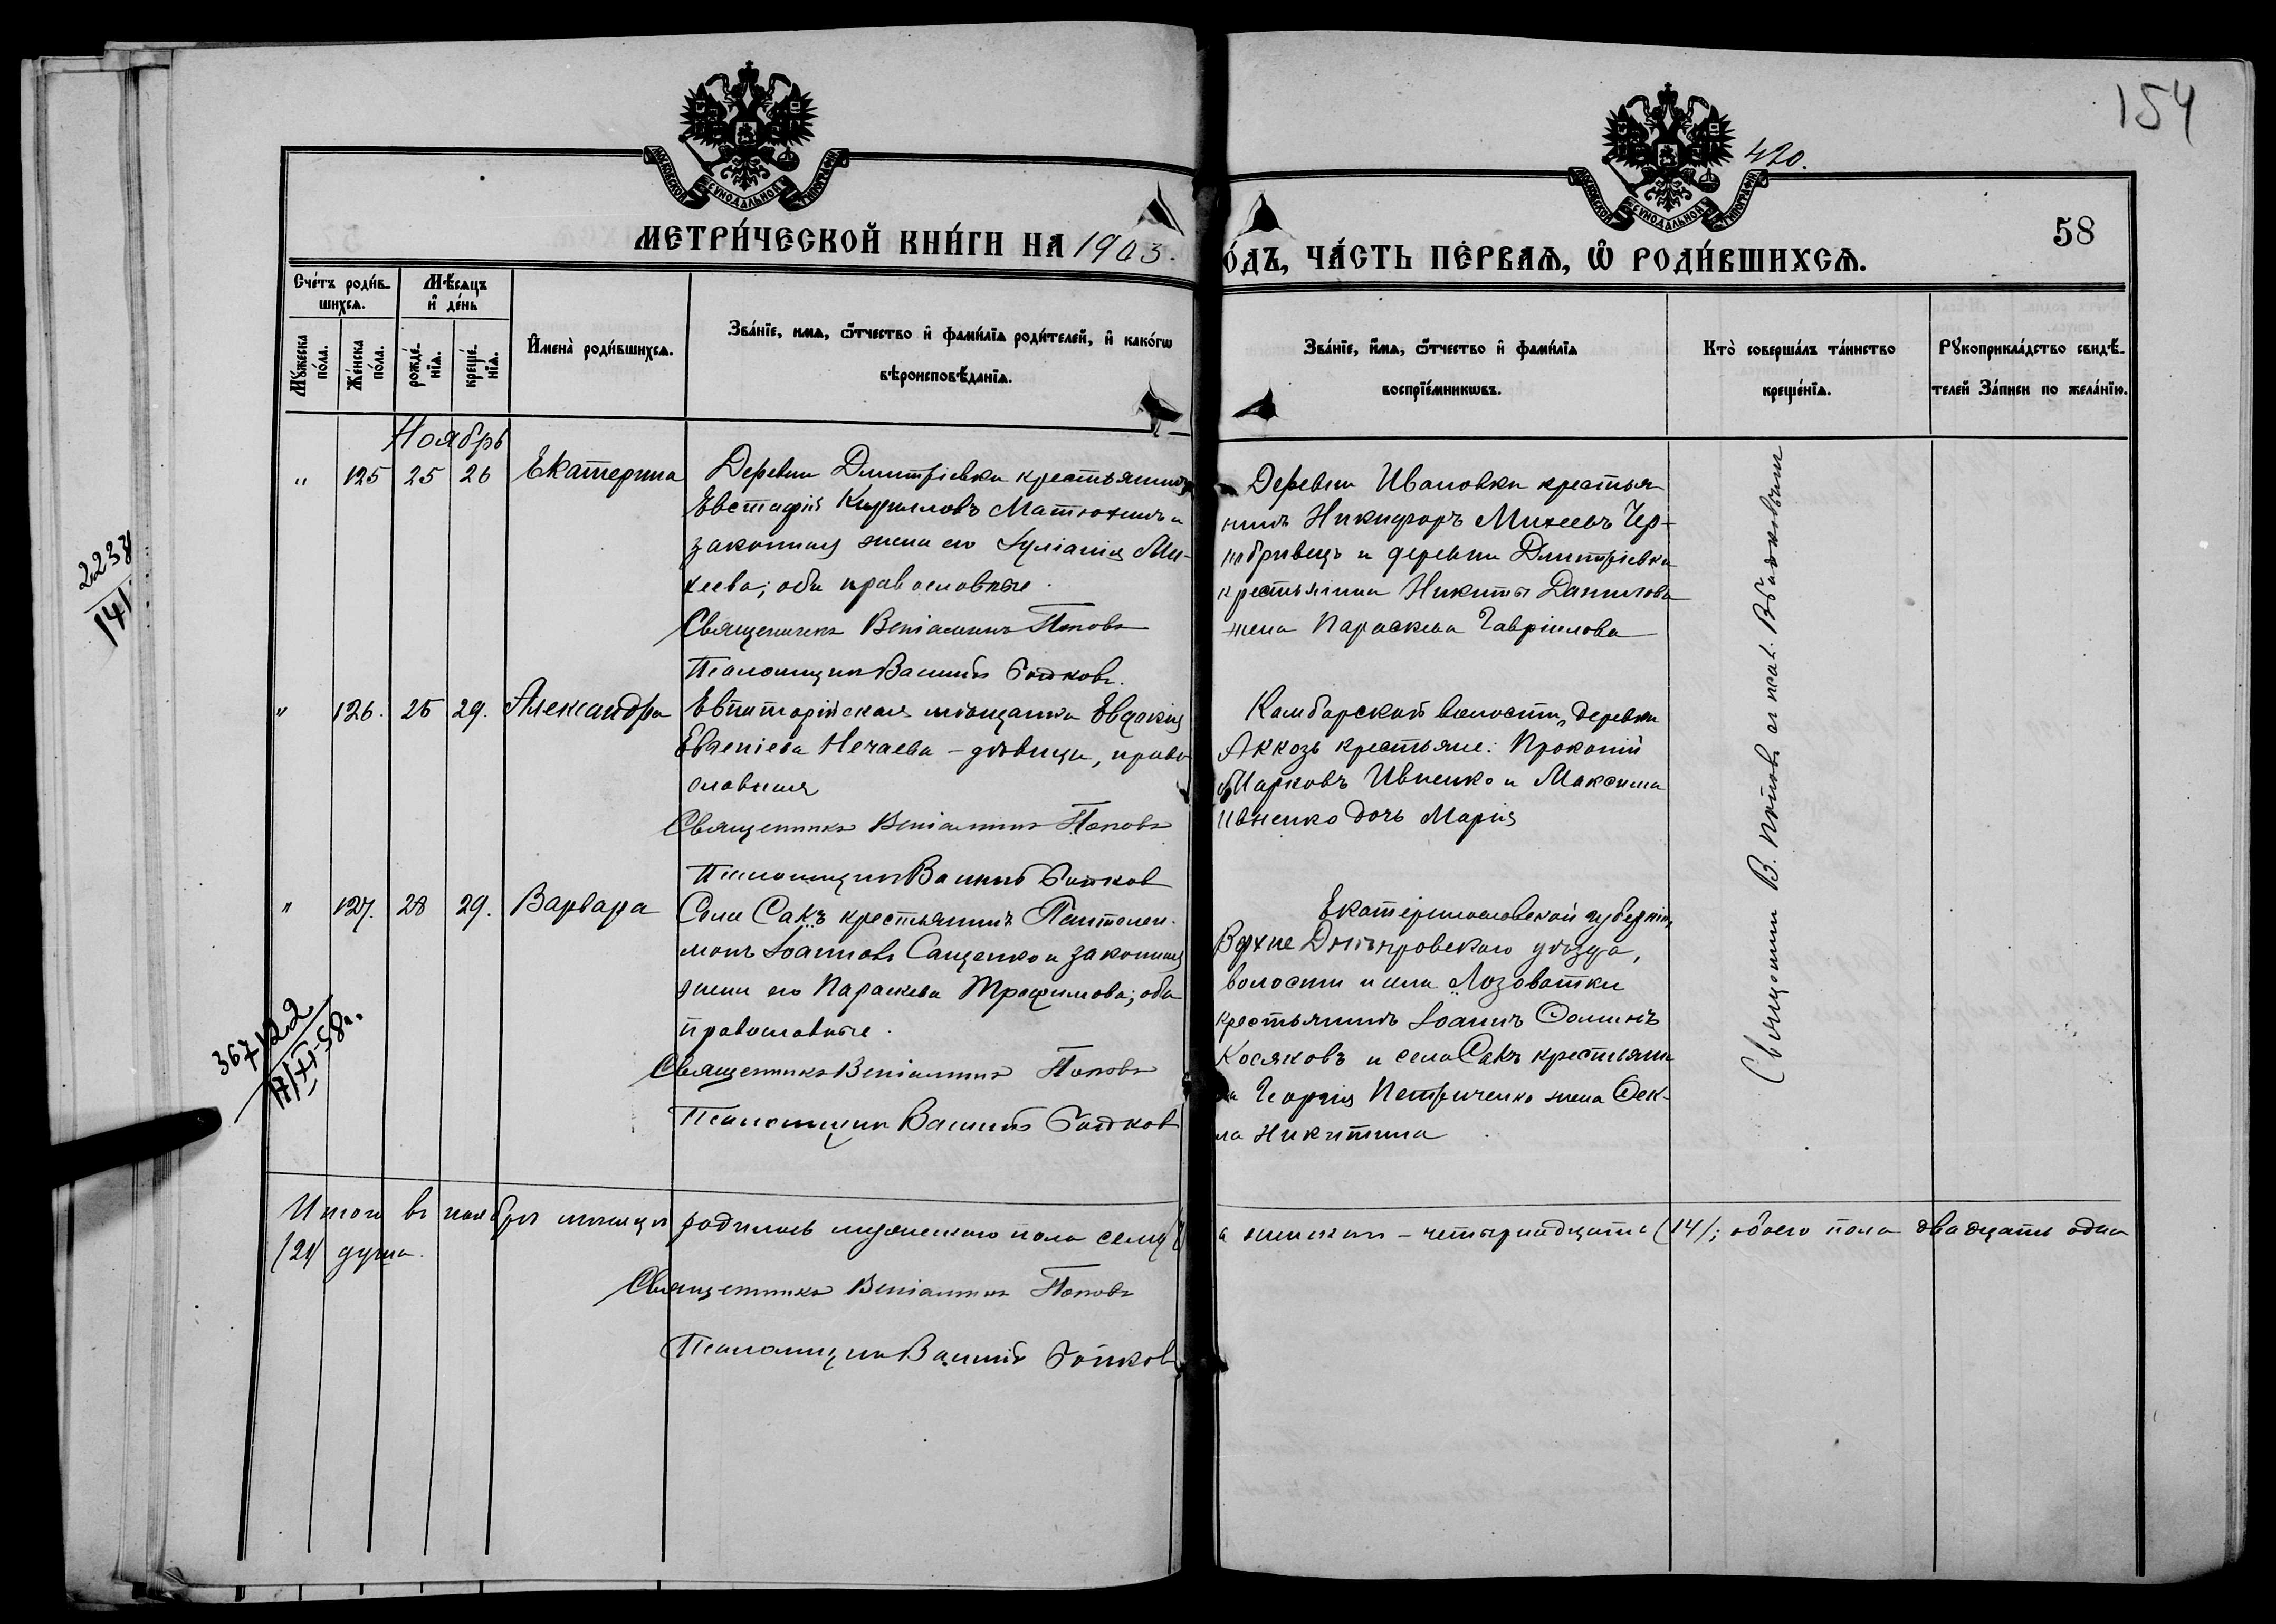 154
420.
МОСКОВСКОЙ СѴНОДАЛЬНОЙ ТИПОГРАФІИ
МОСКОВСКОЙ СѴНОДАЛЬНОЙ ТИПОГРАФІИ
58
МЕТРИ́ЧЕСКОЙ КНИ́ГИ НА 1903.
О́ДЪ, ЧА́СТЬ ПЕ́РВАѦ, Ѡ҆ РОДИ́ВШИХСѦ.
Сче́тъ роди́в-
шихсѧ.
Мꙋ́жеска по́ла.
Же́нска по́ла.
Мѣ́сѧцъ
и҆ де́нь
рожде́-
нїѧ.
креще́-
нїѧ.
И҆мена̀ роди́вшихсѧ.
Зва́нїе, имѧ, ѻ҆́тчество и҆ фами́лїѧ роди́телей, и҆ како́гѡ
вѣроисповѣ́данїѧ.
Зва́нїе, и҆́мѧ, ѻ҆́тчество и҆ фами́лїѧ
воспрїе́мникѡвъ.
Кто̀ соверша́лъ та́инство
креще́нїѧ.
Рꙋкоприкла́дство свидѣ́-
телей За́писи по жела́нїю.
Ноябрь
" 125 25 26 Екатерина
Деревни Дмитріевки крестьянинъ
Евстафій Кирилловъ Матюхинъ и
законная жена его Іуліанія Ми-
хеева; оба православные.
Священникъ Веніаминъ Поповъ
Псаломщикъ Василій Бойковъ.
Деревни Ивановки крестья-
нинъ Никифоръ Михеевъ Чер-
нобривецъ и деревни Дмитріевки
крестьянина Никиты Данилова
жена Параскева Гавріилова
" 126. 25 29. Александра
Евпаторійская мѣщанка Евдокія
Евгеніева Нечаева - дѣвица, право-
славная
Священникъ Веніаминъ Поповъ
Псаломщикъ Василій Бойков
Камбарской волости, деревни
Аккозъ крестьяне: Прокопій
Марковъ Ивненко и Максима
Ивненко дочь Марія
" 127. 28 29. Варвара
Села Сакъ крестьянинъ Пантелеи-
монъ Іоанновъ Сащенко и законная
жена его Параскева Трофимова; оба
православные.
Священникъ Веніаминъ Поповъ
Псаломщикъ Василій Бойков
Екатеринославской губерніи,
Верхне Днѣпровского уѣзда,
волости и села Лозоватки
крестьянинъ Іоаннъ Ѳоминъ
Косяковъ и села Сакъ крестьяни-
на Георгія Петриченко жена Ѳек-
ла Никитина
Священник В. Поповъ съ псал. В. Бойковымъ
Итого въ ноябрѣ мѣсяцѣ родилось мужескаго пола семь
а женскаго - четырнадцать (14); обоего пола двадцать одна
(21) душа.
Священникъ Веніаминъ Поповъ
Псаломщикъ Василій Бойков
141
367122
17/XI-58г.